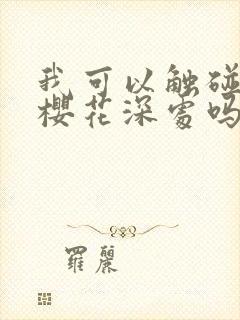 我可以触碰
樱花深处吗
罗丽